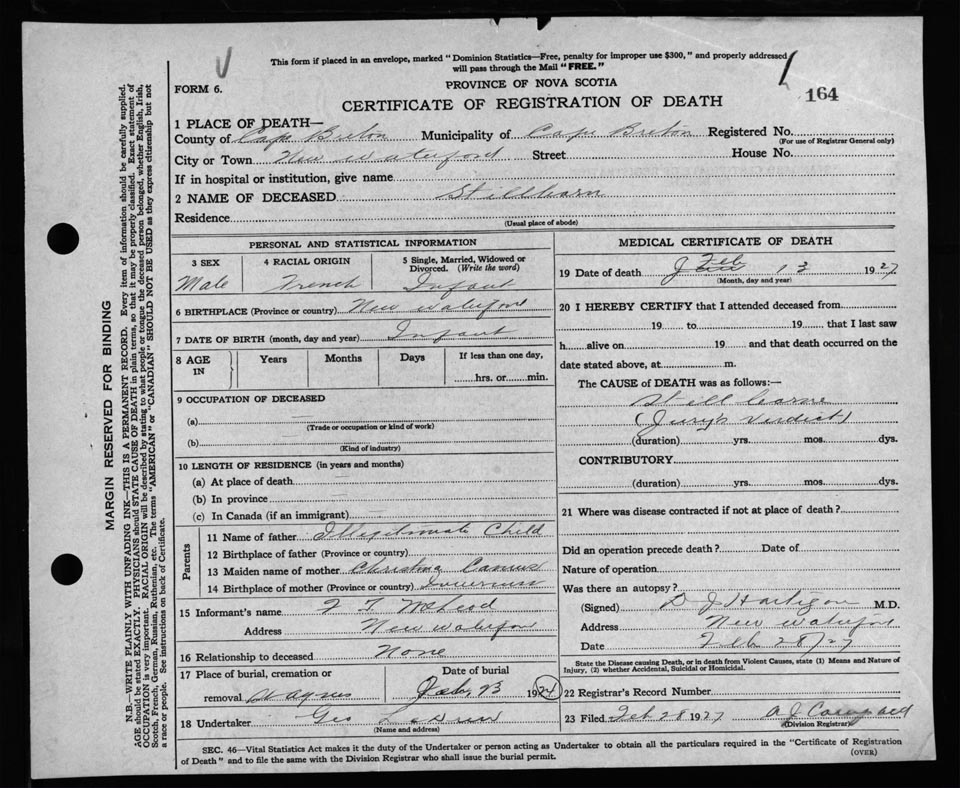 This form if placed in an envelope, marked "Dominion Statistics—Free, penalty for improper use $300," and properly addressed
will pass through the Mail "FREE."
FORM 6.
PROVINCE OF NOVA SCOTIA
CERTIFICATE OF REGISTRATION OF DEATH
164
1 PLACE OF DEATH—
County of Cape Breton Municipality of Cape Breton Registered No.
(For use of Registrar General only)
City or Town New Waterford Street House No.
If in hospital or institution, give name
2 NAME OF DECEASED Stillborn
Residence
(Usual place of abode)
PERSONAL AND STATISTICAL INFORMATION
3 SEX 4 RACIAL ORIGIN 5 Single, Married, Widowed or Divorced. (Write the word)
Male French Infant
6 BIRTHPLACE (Province or country) New Waterford
7 DATE OF BIRTH (month, day and year) Infant
8 AGE IN Years Months Days If less than one day,
hrs. or min.
9 OCCUPATION OF DECEASED
(a)
(Trade or occupation or kind of work)
(b)
(Kind of industry)
10 LENGTH OF RESIDENCE (in years and months)
(a) At place of death
(b) In province
(c) In Canada (if an immigrant)
Parents
11 Name of father Illegitimate Child
12 Birthplace of father (Province or country)
13 Maiden name of mother Christina
14 Birthplace of mother (Province or country) Inverness
15 Informant's name McLeod
Address New Waterford
16 Relationship to deceased None
17 Place of burial, cremation or Date of burial
removal 192
18 Undertaker Geo
(Name and address)
MEDICAL CERTIFICATE OF DEATH
19 Date of death Feb 13 1927
(Month, day and year)
20 I HEREBY CERTIFY that I attended deceased from
19 to 19 that I last saw
h alive on 19 and that death occurred on the
date stated above, at m.
The CAUSE of DEATH was as follows:—
Still borne
(Jury's Verdict)
(duration) yrs. mos. dys.
CONTRIBUTORY
(duration) yrs. mos. dys.
21 Where was disease contracted if not at place of death?
Did an operation precede death? Date of
Nature of operation
Was there an autopsy?
(Signed) D J Hartigan M.D.
Address New Waterford
Date Feb 28/27
State the Disease causing Death, or in death from Violent Causes, state (1) Means and Nature of
Injury, (2) whether Accidental, Suicidal or Homicidal.
22 Registrar's Record Number
23 Filed Feb 28 1927 A J Campbell
(Division Registrar)
SEC. 46—Vital Statistics Act makes it the duty of the Undertaker or person acting as Undertaker to obtain all the particulars required in the "Certificate of Registration
of Death" and to file the same with the Division Registrar who shall issue the burial permit.
(OVER)
MARGIN RESERVED FOR BINDING
N.B.—WRITE PLAINLY WITH UNFADING INK—THIS IS A PERMANENT RECORD. Every item of information should be carefully supplied.
AGE should be stated EXACTLY. PHYSICIANS should STATE CAUSE OF DEATH in plain terms, so that it may be properly classified. Exact statement of
OCCUPATION is very important. RACIAL ORIGIN will be described by stating to what people or tongue the deceased person belonged, whether English, Irish,
Scotch, French, German, Russian, Ruthenian, etc. The terms "AMERICAN" or "CANADIAN" SHOULD NOT BE USED as they express citizenship but not
a race or people. See instructions on back of Certificate.